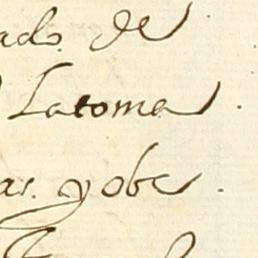 ado. de
Latoma
as. y obe